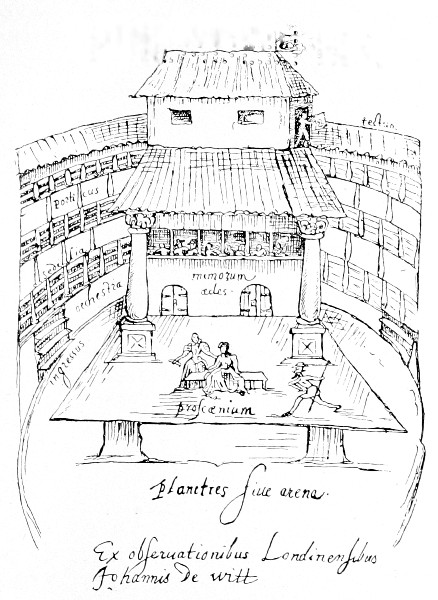 tectum
porticus
sedilia
orchestra
ingressus
mimorum
ædes.
proscænium
planities siue arena.
Ex obseruationibus Londinensibus
Johannis de witt